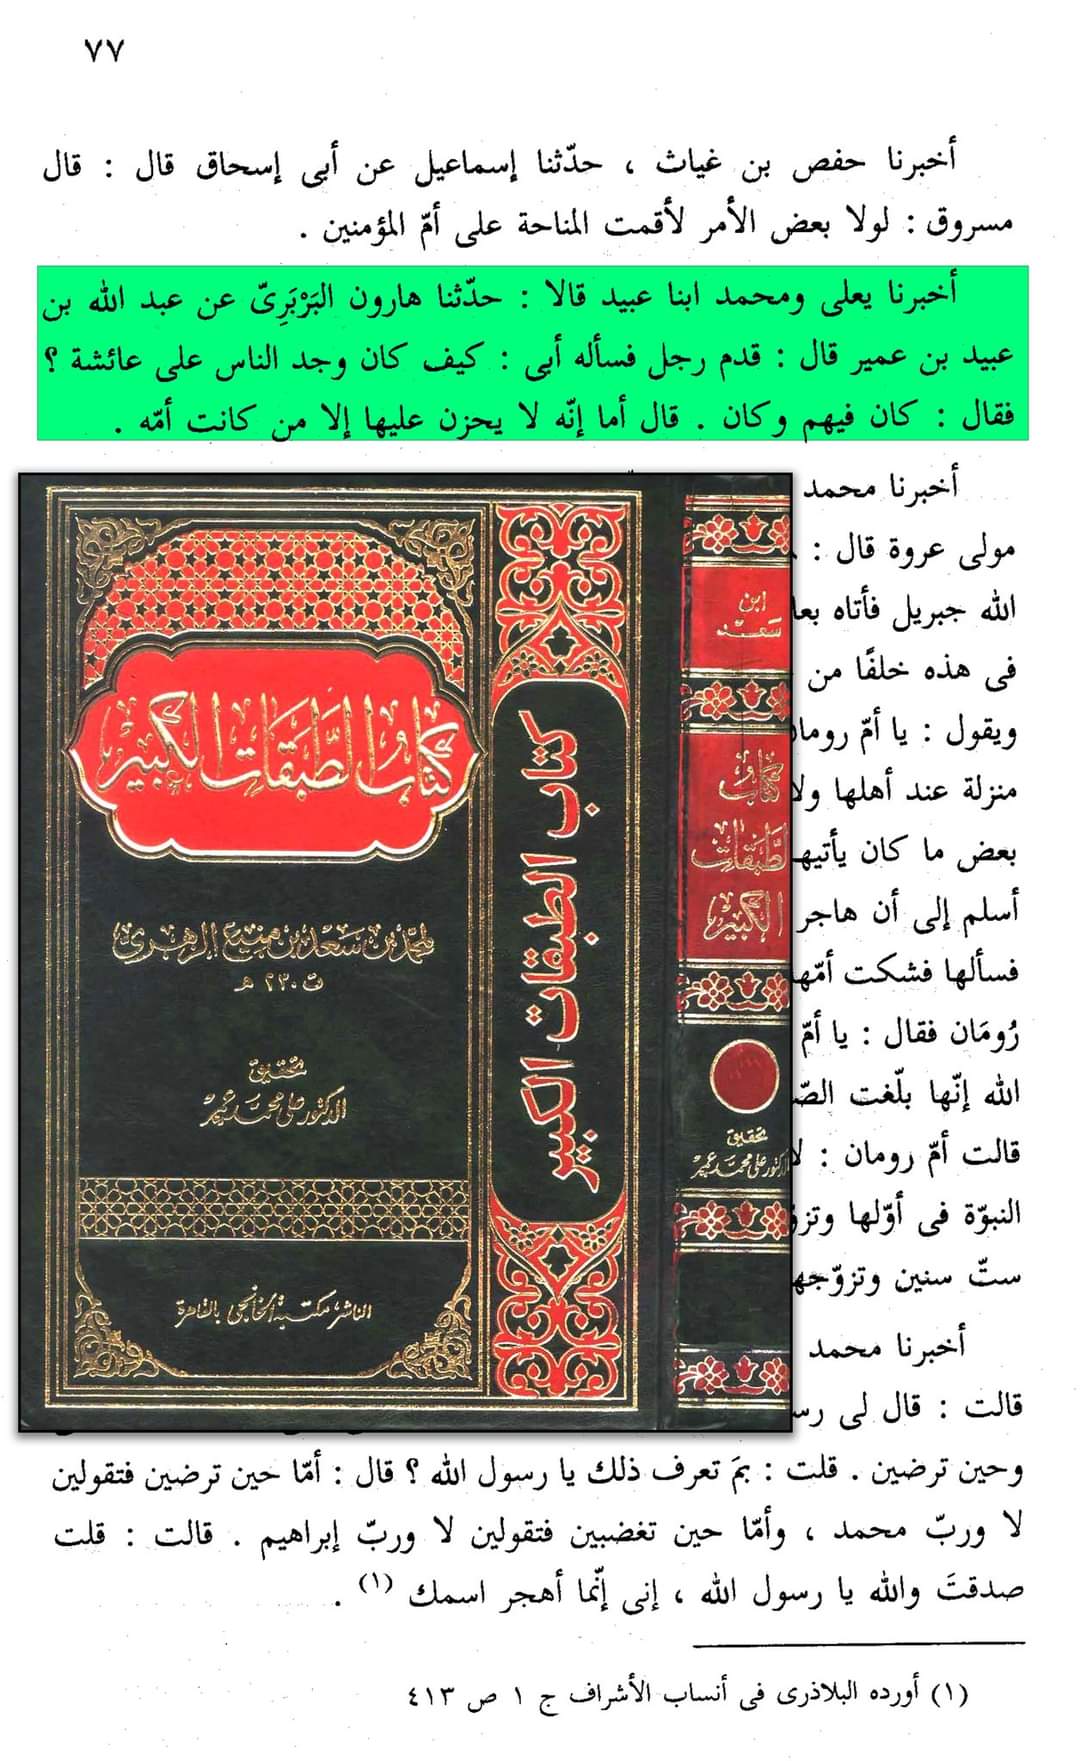 ٧٧
أخبرنا حفص بن غياث ، حدّثنا إسماعيل عن أبى إسحاق قال : قال
مسروق : لولا بعض الأمر لأقمت المناحة على أمّ المؤمنين .
أخبرنا يعلى ومحمد ابنا عبيد قالا : حدّثنا هارون البَرْبَرِىّ عن عبد الله بن
عبيد بن عمير قال : قدم رجل فسأله أبى : كيف كان وجد الناس على عائشة ؟
فقال : كان فيهم وكان . قال أما إنّه لا يحزن عليها إلا من كانت أمّه .
أخبرنا محمد
مولى عروة قال :
الله جبريل فأتاه
فى هذه خلفًا من
ويقول : يا أمّ
منزلة عند أهلها
بعض ما كان
أسلم إلى أن هاجر
فسألها فشكت
رُومَان فقال : يا أمّ
الله إنّها بلّغت
قالت أمّ رومان :
النبوّة فى أوّلها
ستّ سنين
أخبرنا محمد
قالت : قال لى
وحين ترضين . قلت : بمَ تعرف ذلك يا رسول الله ؟ قال : أمّا حين ترضين فتقولين
لا وربّ محمد ، وأمّا حين تغضبين فتقولين لا وربّ إبراهيم . قالت : قلت
صدقتَ والله يا رسول الله ، إنى إنّما أهجر اسمك (١) .
(١) أورده البلاذرى فى أنساب الأشراف ج ١ ص ٤١٣
كتاب الطبقات الكبير
لمحمد بن سعد بن منيع الزهري
ت ٢٣٠ هـ
تحقيق
الدكتور على محمد عمر
الناشر مكتبة الخانجى بالقاهرة
كتاب الطبقات الكبير
ابن
سعد
كتاب
الطبقات
الكبير
تحقيق
الدكتور على محمد عمر